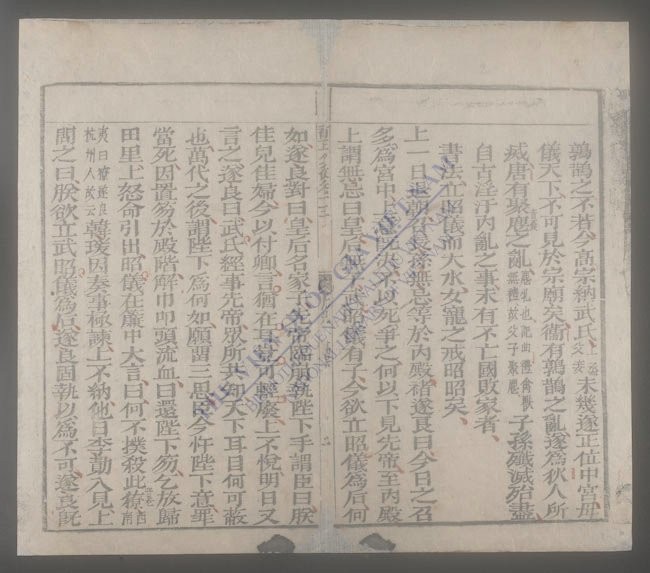 鶉鵲之不若今高宗納武氏上烝父妾未幾遂正位中宮母
儀天下不可見於宗廟矣衛有鶉鵲之亂遂為狄人所
滅唐有聚麀之亂麀牝也記曲禮禽獸無禮故父子聚麀子孫殲滅殆盡
自古淫汙內亂之事未有不亡國敗家者
書法立昭儀而大水女寵之戒昭昭矣
上一日退朝召長孫無忌等於內殿褚遂良曰今日之召
多為宮中上意既決不以死爭之何以下見先帝至內殿
上謂無忌曰皇后無子武昭儀有子今欲立昭儀為后何
如遂良對曰皇后名家子先帝臨崩執陛下手謂臣曰朕
佳兒佳婦今以付卿言猶在耳豈可輕廢上不悅明日又
言之遂良曰武氏經事先帝眾所共知天下耳目何可蔽
也萬代之後謂陛下為何如願留三思臣今忤陛下意罪
當死因置笏於殿階解巾叩頭流血曰還陛下笏乞放歸
田里上怒命引出昭儀在簾中大言曰何不撲殺此獠西南
夷曰獠遂良杭州人故云韓瑗因奏事極諫上不納他日李勣入見上
問之曰朕欲立武昭儀為后遂良固執以為不可遂良既
THƯ VIỆN QUỐC GIA VIỆT NAM